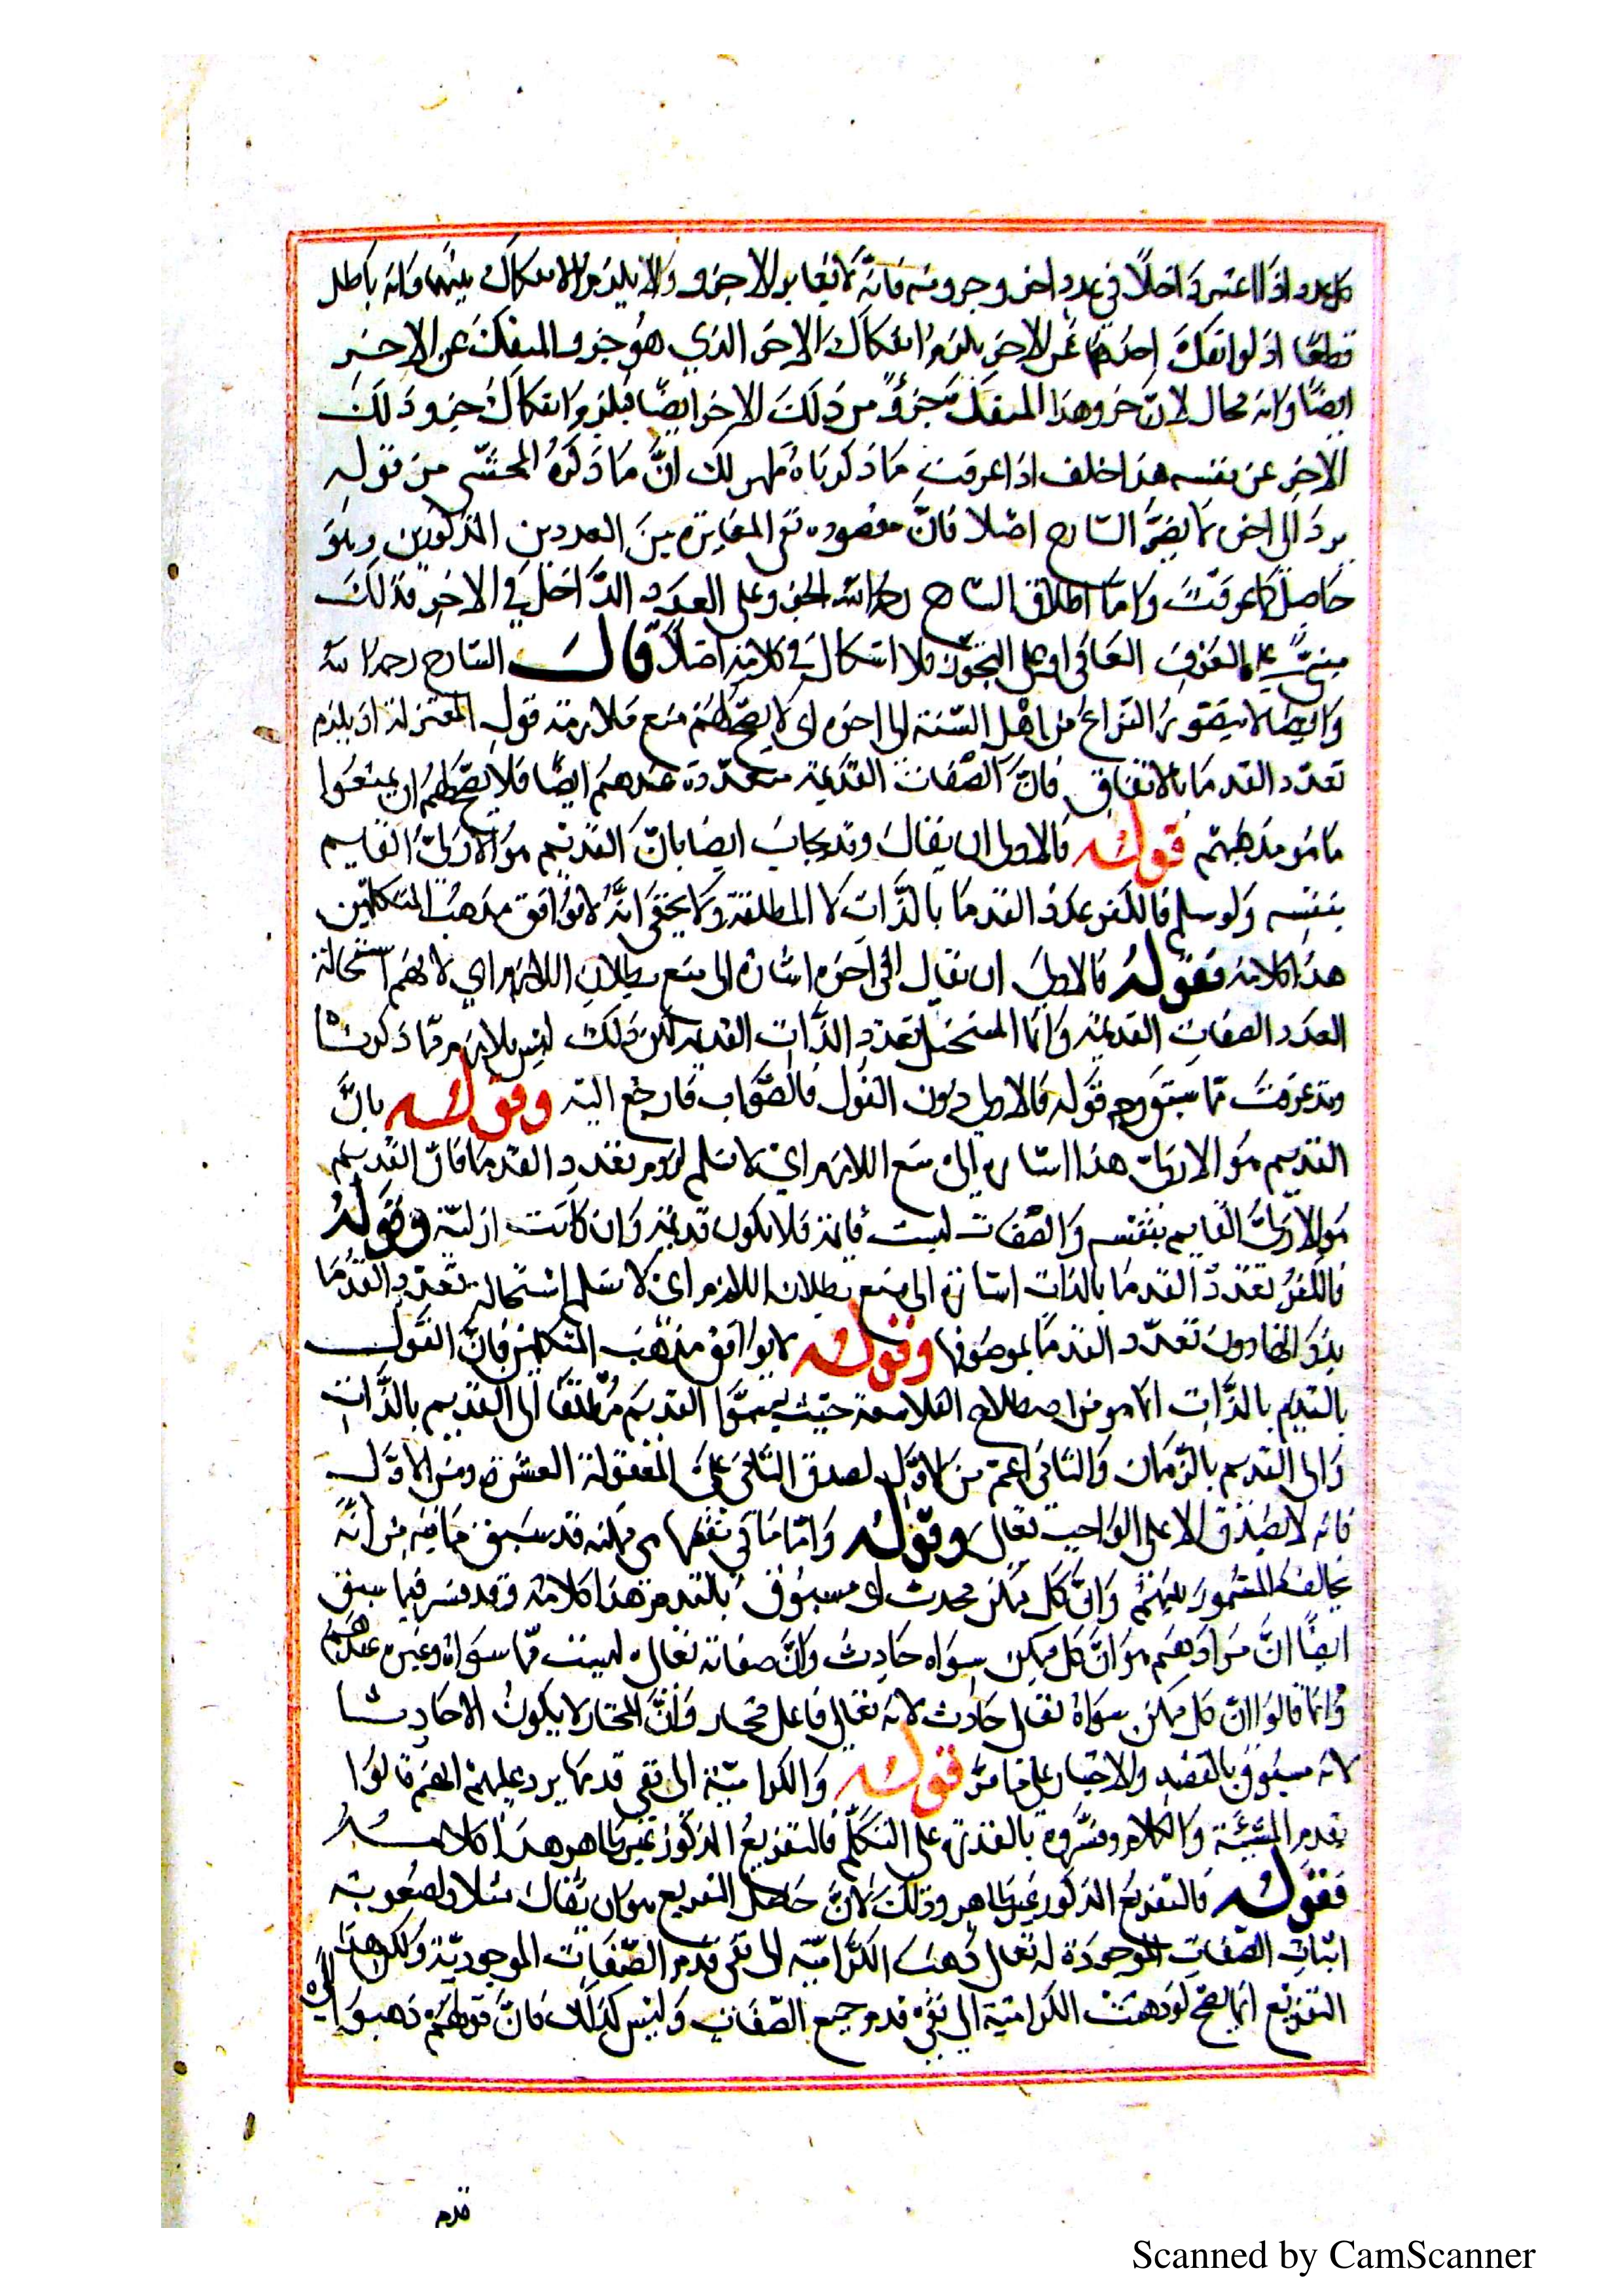 كل عدد اذا اعتبر داخلا في عدد اخر وجزو منه فانه لا يغاير الاخر والا يلزم الانفكاك بينهما وانه باطل
قطعا اذ لو انفك احدهما عن الاخر يلزم انفكاك الاخر الذي هو جزو المنفك عن الاخر
ايضا وانه محال لان جزو هذا المنفك جزو من ذلك الاخر ايضا فيلزم انفكاك جزو ذلك
الاخر عن نفسه هذا خلف اذا عرفت ما ذكرناه ظهر لك ان ما ذكره المحشي من قوله
يرد الى اخر لا يضر الشارح اصلا فان مقصوده نفي المغايرة بين العددين المذكورين وهو
حاصل كما عرفت واما اطلاق الشارح رحمه الله الجزو على العدد الداخل في الاخر فذلك
مبني على العرف العامي او على التجوز فلا اشكال في كلامه اصلا قال الشارح رحمه الله
وايضا لا يتصور النزاع من اهل السنة الى اخره اى لا يصح لهم منع قول المعتزلة اذ يلزم
تعدد القدما بالاتفاق فان الصفات القديمة متعددة عندهم ايضا فلا يصح لهم ان يمنعوا
ما هو مذهبهم قوله فالاولى ان يقال وقد يجاب ايضا بان القديم هو الازلي القايم
بنفسه ولو سلم فالكفر تعدد القدما بالذات لا المطلقة ولا يخفى انه لا يوافق مذهب المتكلمين
هذا كلامه فقوله فالاولى ان يقال الى اخره اشارة الى منع بطلان اللازم اي لا نسلم استحالة
تعدد الصفات القديمة وانما المستحيل تعدد الذات القديمة لكن ذلك ليس بلازم مما ذكرنا
وقد عرفت مما سبق وجه قوله فالاولى دون القول فالصواب فارجع اليه وقوله بان
القديم هو الازلي هذا اشارة الى منع اللازم اي لا نسلم لزوم تعدد القدما فان القديم
هو الازلي القايم بنفسه والصفات ليست قايمة فلا تكون قديمة وان كانت ازلية وقوله
فالكفر تعدد القدما بالذات اشارة الى منع بطلان اللازم اى لا نسلم استحالة تعدد القدما
بذواتها دون تعدد القدما بموصوفها وقوله لا يوافق مذهب المتكلمين فان القول
بالقديم بالذات انما هو من اصطلاح الفلاسفة حيث قسموا القديم مطلقا الى القديم بالذات
والى القديم بالزمان والثاني اعم من الاول لصدق الثاني على المعقولة العشرة دون الاول
فانه لا يصدق الا على الواجب تعالى وقوله واما ما في نفسها فهي ممكنة قد سبق ما فيه من انه
يخالف المشهور بينهم وان كل ممكن محدث اى مسبوق بالعدم هذا كلامه وقد مر فيما سبق
ايضا ان مرادهم هو ان كل ممكن سواه حادث وان صفاته تعالى ليست مما سواه وغيره عندهم
وانما قالوا ان كل ممكن سواه تعالى حادث لانه تعالى فاعل مختار واثر المختار لا يكون الا حادثا
لانه مسبوق بالقصد والاختيار على ما مر قوله والكرامية الى نفي قدمها يرد عليهم انهم قالوا
بقدم المشيئة والكلام وفسروه بالقدرة على التكلم فالتفريع المذكور غير ظاهر هذا كلامه
فقوله فالتفريع المذكور غير ظاهر وذلك لان حاصل التفريع هو ان يقال مثلا ولصعوبة
اثبات الصفات الموجودة له تعالى ذهبت الكرامية الى نفي قدم الصفات الموجودية ولكن هذا
التفريع انما يصح لو ذهبت الكرامية الى نفي قدم جميع الصفات وليس كذلك فان قولهم ذهبوا الى
قدم
Scanned by CamScanner